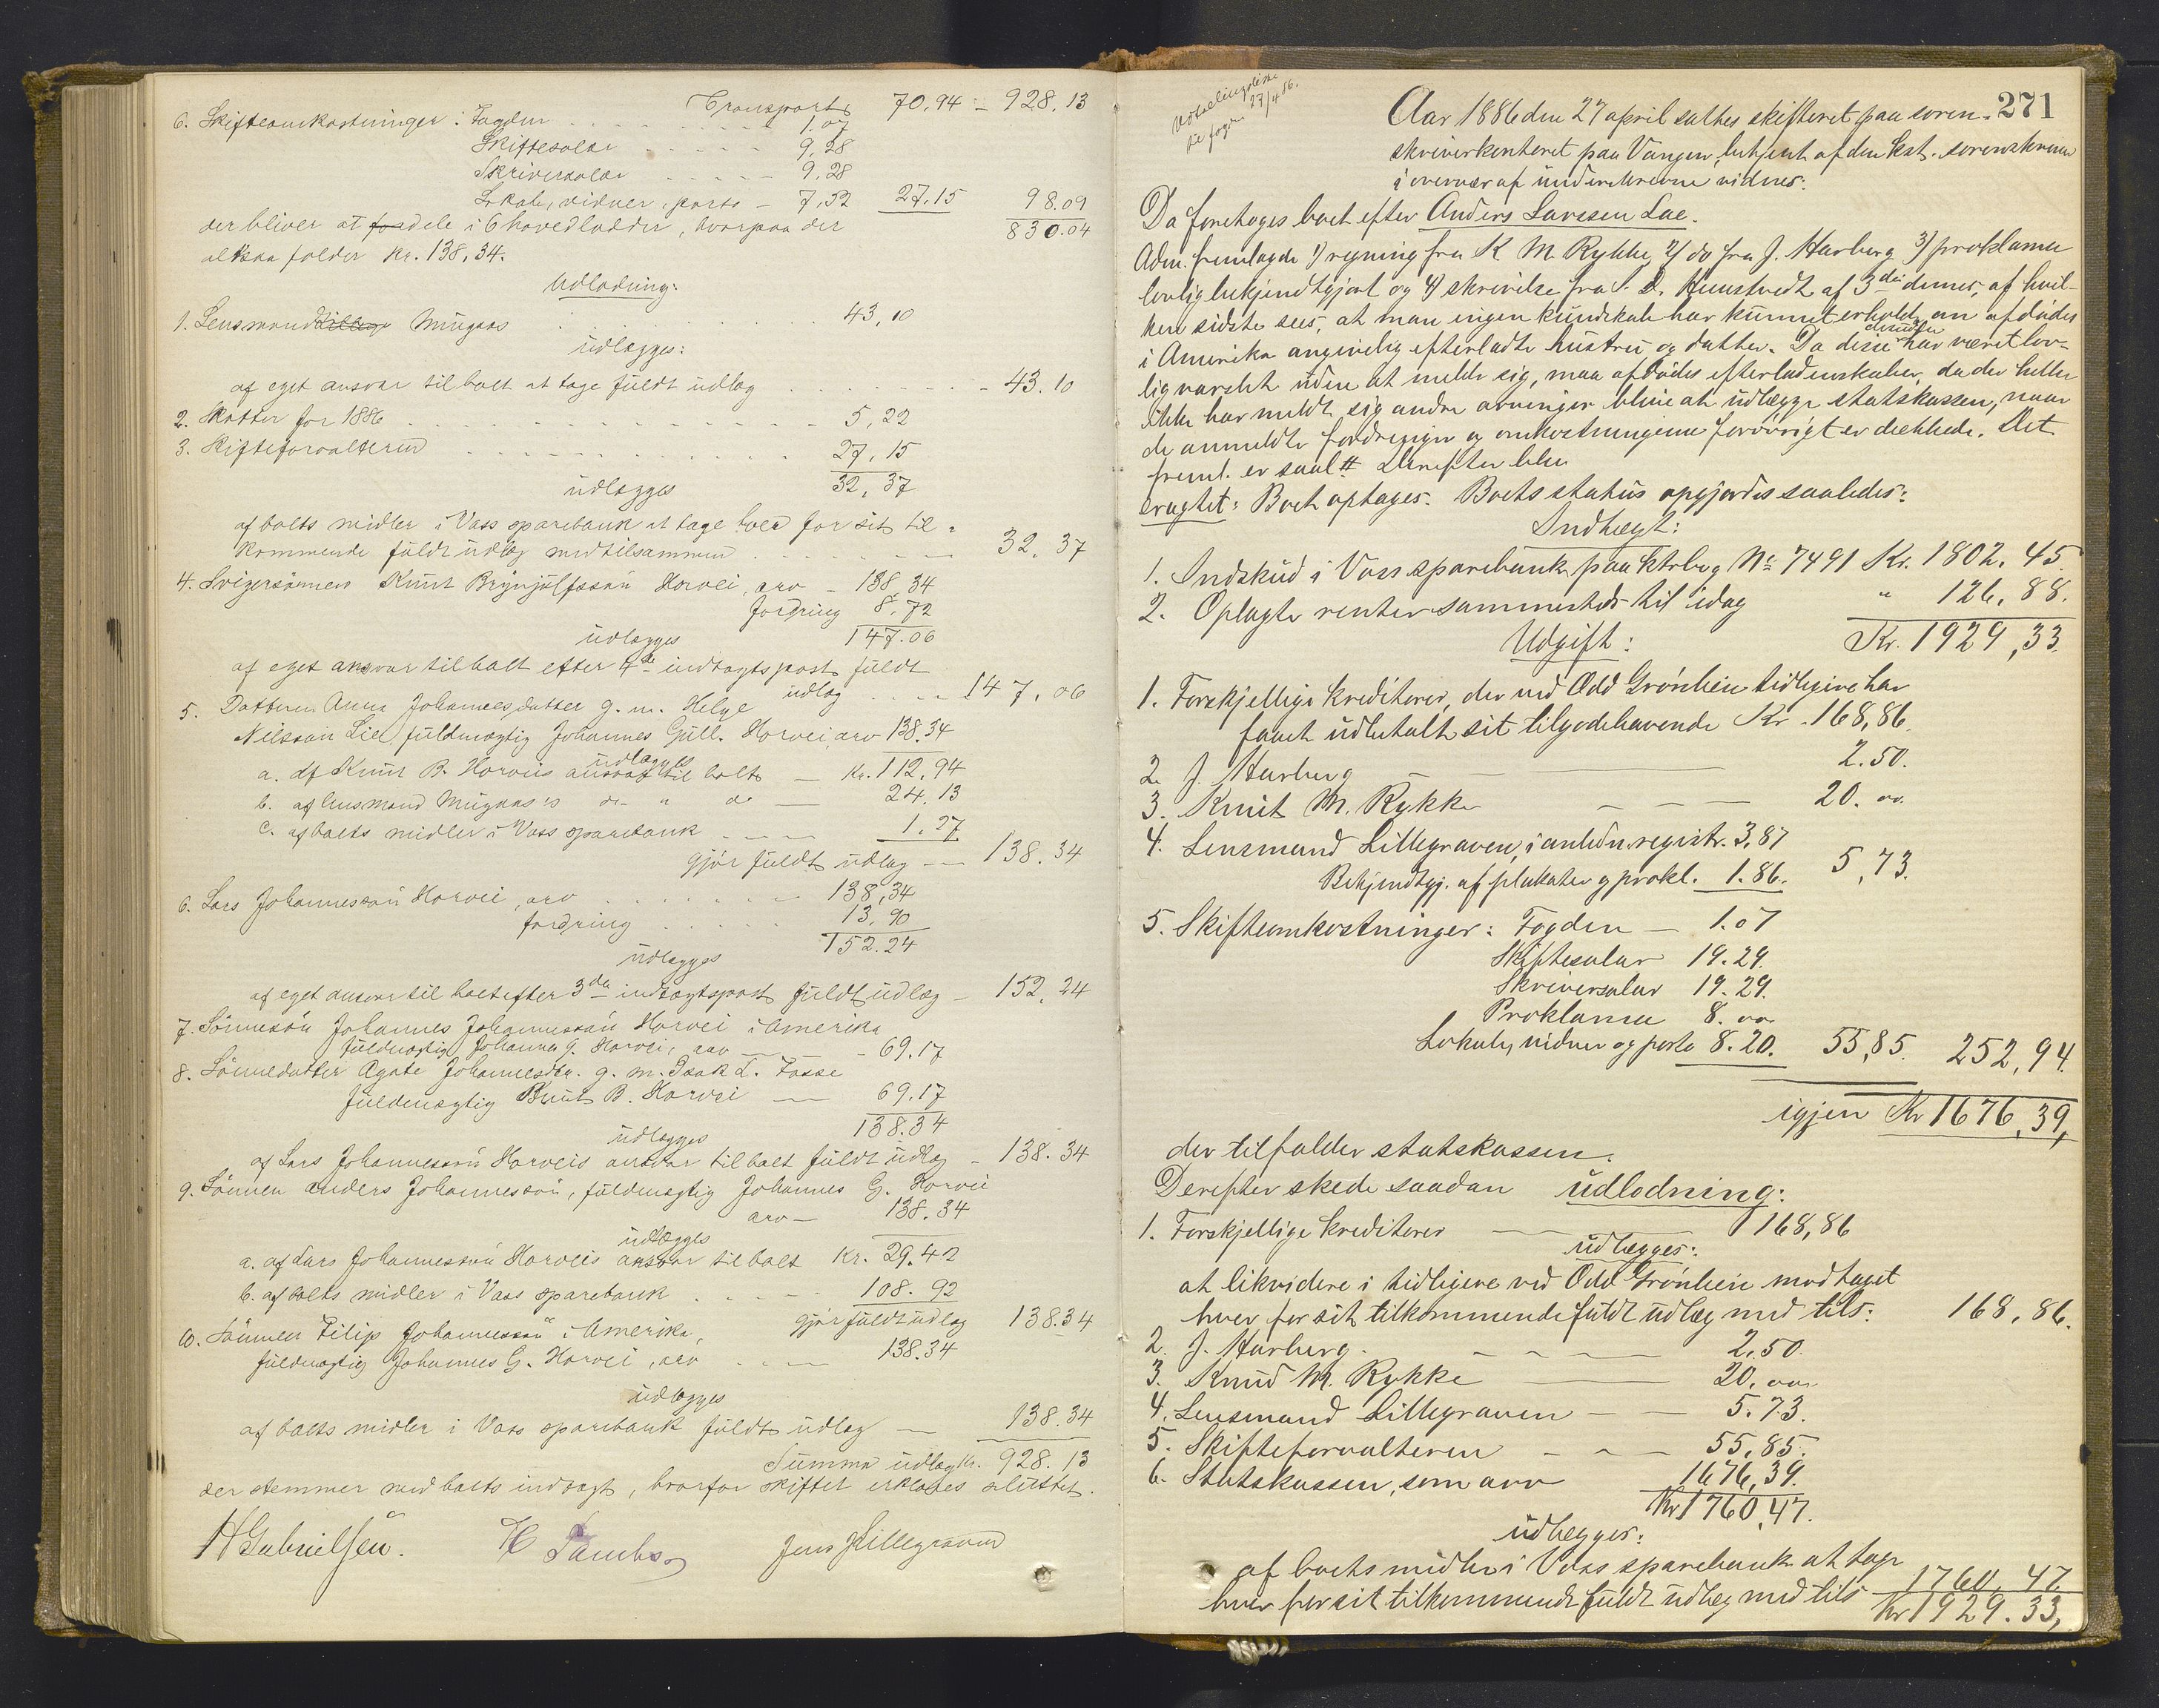 Transport 70.94 - 928.13
6. Skifteomkostninger: Fogden 1.07
Skiftesalær 9,28
Skriversalær 9.28
Lokale, vidner, porto - 7,52 27.15 98.09
der bliver at fordele i 6 hovedlodder, hvorpaa der 830.04
altsaa falder kr. 138,34.
Udlodning:
1. Lensmand Mügaas 43,10
üdlægges:
af eget ansvar til boet at tage fuldt udlæg - 43.10
2. Skatter for 1886 5,22
3. Skifteforvalteren 27,15
üdlægges 32,37
af boets midler i Voss sparebank at tage hver for sit til-
kommende füldt üdlæg med tilsammen 32,37
4. Svigersönnen Knüt Brynjülfssön Horvei, arv - 138,34
fordring 8,72
üdlægges 147.06
af eget ansvar til boet efter 4de indtægtspost füldt
üdlæg 147,06
5. Datteren Anna Johannesdatter g. m. Helge
Nilssön Lie, füldmægtig Johannes Güll. Horvei, arv 138.34
üdlægges
a. af Knüt B. Horveis ansvar til boet - Kr. 112,94
b. af lensmand Mügaas's do " do - 24,13
c. af boets midler i Voss sparebank 1.27
gjør füldt üdlæg - 138.34
6. Lars Johannessön Horvei, arv 138,34
fordring 13,90
üdlægges 152.24
af eget ansvar til boet efter 3die indtægtspost füldt üdlæg - 152,24
7. Sönnesön Johannes Johannessön Horvei i Amerika
füldmægtig Johannes G. Horvei, arv - 69.17
8. Sönnedatter Agate Johannesdtr. g. m. Isak L. Fosse
füldmægtig Knüt B. Horvei - 69.17
üdlægges 138.34
af Lars Johannessön Horveis ansvar til boet füldt üdlæg - 138.34
9. Sönnen Anders Johannessön, füldmægtig Johannes G. Horvei
arv - 138.34
üdlægges
a. af Lars Johannessön Horveis ansvar til boet Kr. 29.42
b. af boets midler i Voss sparebank 108.92
gjør füldt üdlæg 138.34
10. Sönnen Filip Johannessön i Amerika,
füldmægtig Johannes G. Horvei, arv 138.34
üdlægges
af boets midler i Voss sparebank füldt üdlæg - 138.34
Summa üdlæg Kr. 928.13
der stemmer med boets indtægt, hvorfor skiftet erklæres slüttet.
H Gabrielsen. Jens Lillegraven
Udtællingsliste
til fogd. 27/4 86.
271
Aar 1886 den 27 april sattes skifteret paa soren-
skriverkontoret paa Vangen, betjent af den kst. sorenskriver
i overvær af underskrevne vidner.
Da foretoges boet efter Anders Larssen Lae.
Adm. fremlagde 1) regning fra K M Rykke, 2) do fra J. Harberg 3) proklama
lovlig bekjendtgjort og 4) skrivelse fra S. D. Hemstvedt af 3die dennes, af hvil-
ken sidste sees, at man ingen kundskab har kunnet erholde om afdödes
i Amerika angivelig efterladte hustru og datter. Da disse desuden har været lov-
lig varslet uden at melde sig, maa afdödes efterladenskaber, da der heller
ikke har meldt sig andre arvinger blive at udlægge statskassen, naar
de anmeldte fordringer og omkostningerne forövrigt er dækkede. Det
freml. er saal # Derefter blev
eragtet: Boet optages. Boets status opgjordes saaledes:
Indtægt:
1. Indskud i Voss sparebank paa ktrbog No 7491 Kr. 1802.45
2. Oplagte renter sammesteds til idag " 126.88.
Kr. 1929,33.
Udgift:
1. Forskjellige kreditorer, der ved Odd Grönlien tidligere har
faaet udbetalt sit tilgodehavende Kr. 168,86.
2. J. Harberg 2.50.
3. Knut M. Rykke 20. oo.
4. Lensmand Lillegraven, i anledn. registr. 3,87
Bekjendtgj. af plakater og prokl. 1.86. 5,73.
5. Skifteomkostninger: Fogden - 1.07
Skiftesalær 19.29.
Skriversalær 19.29.
Proklama 8. oo
Lokale, vidner og porto 8.20. 55,85. 252,94.
igjen Kr 1676,39,
der tilfalder statskassen.
Derefter skede saadan üdlodning:
1. Forskjellige kreditorer 168,86
üdlægges:
at likvidere i tidligere ved Odd Grönlien modtaget
hver for sit tilkommende fuldt üdlæg med tils: 168,86.
2. J. Harberg. 2.50.
3. Knud M. Rykke 20. oo.
4. Lensmand Lillegraven - 5.73.
5. Skifteforvalteren 55,85.
6. Statskassen, som arv 1676,39.
Kr 1760,47.
üdlægges:
af boets midler i Voss sparebank at tage
hver for sit tilkommende füldt üdlæg med tils 1760,47
Kr 1929.33,